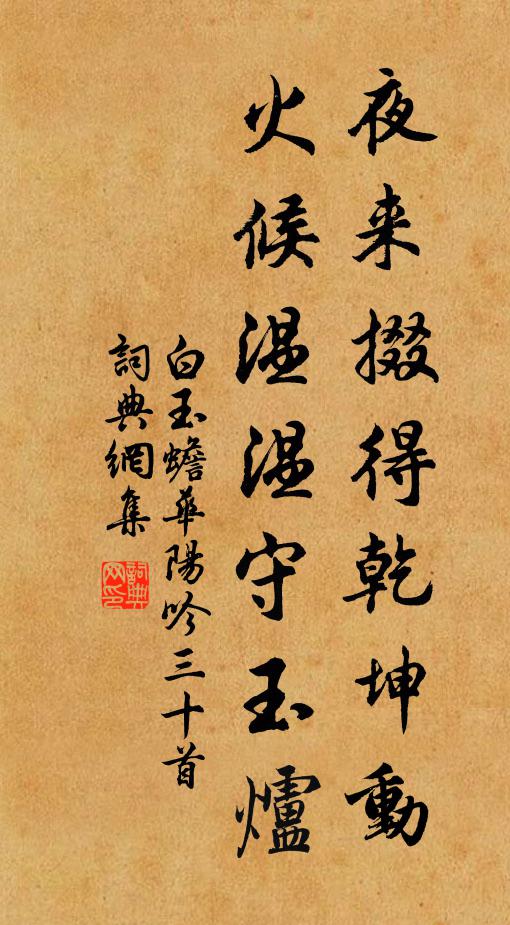 夜来掇得乾坤動
火候温温守玉爐
白玉蟾華陽吟三十首
詞典網集
詞典网印